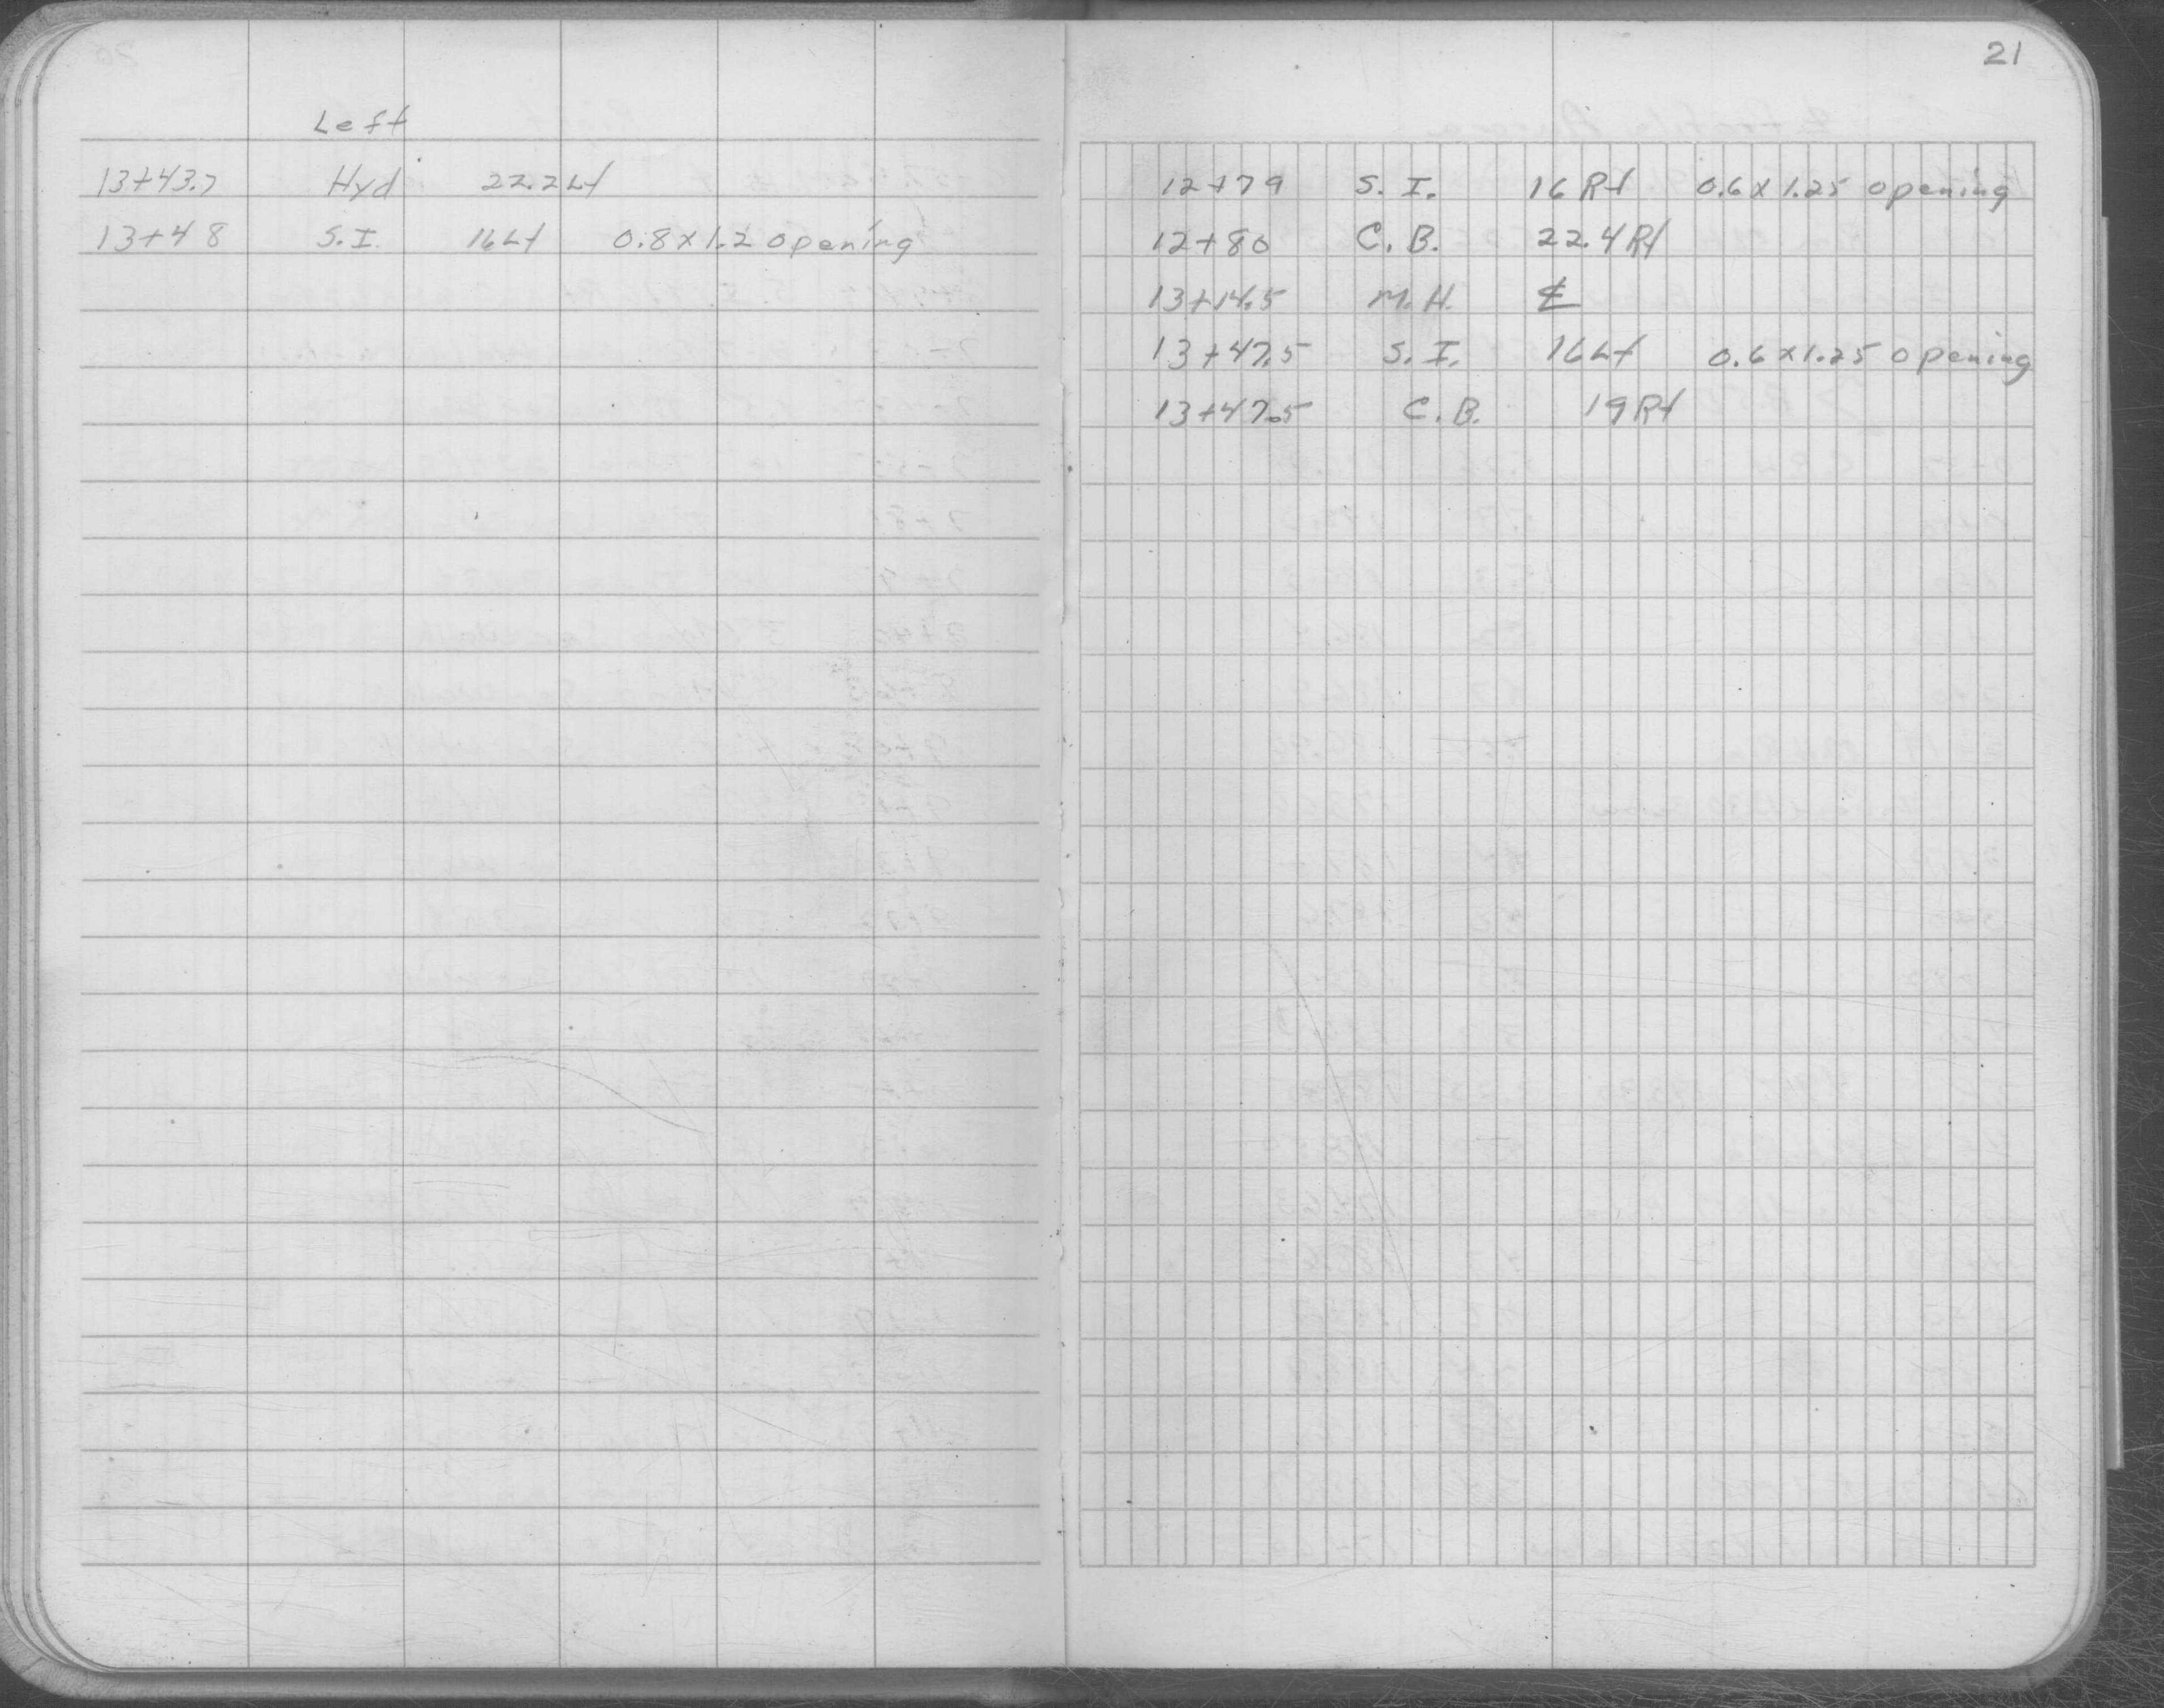 Left
13+43.7 Hyd 22.2 Lt
13+48 S.I. 16 Lt 0.8 x 1.2 opening
21
12+79 S. I. 16 Rt 0.6 x 1.25 opening
12+80 C. B. 22.4 Rt
13+14.5 M. H. ℄
13+47.5 S. I. 16 Lt 0.6 x 1.25 opening
13+47.5 C. B. 19 Rt